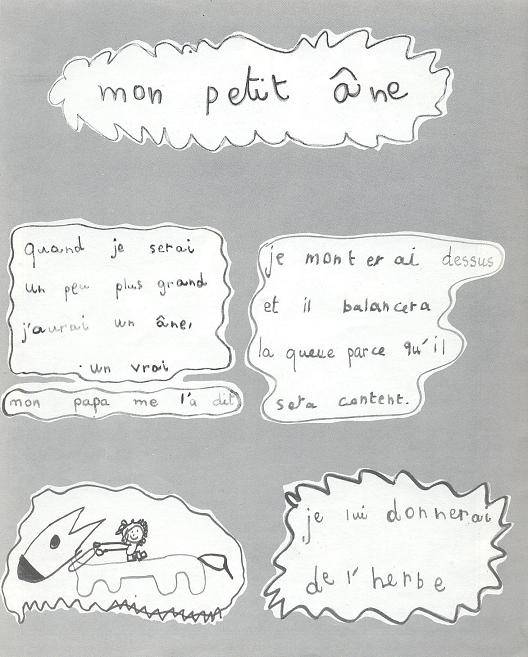 mon petit âne
quand je serai
un peu plus grand
j'aurai un âne,
un vrai
mon papa me l'a dit
je monterai dessus
et il balancera
la queue parce qu'il
sera content.
je lui donnerai
de l'herbe